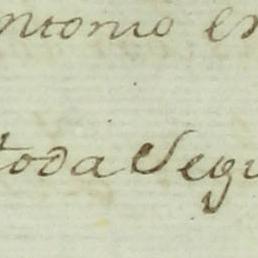 ntonio en
toda Segu